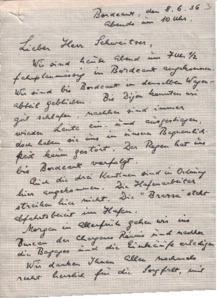 Bordeaux, den 8.6.36
Abends um 10 Uhr.
Lieber Herr Schweitzer,
Wir sind heute Abend um 7 Uhr 1/2
fahrplanmässig in Bordeaux angekommen.
Wir sind bis Bordeaux in demselben Wagen-
abteil geblieben. Bis Dijon konnten wir
gut schlafen, nachher sind immer
wieder Leute ein- und ausgestiegen,
doch haben sie uns in unserer
keit kaum gestört. Der Regen hat uns
bis Bordeaux verfolgt.
Auch die drei Kantinen sind in Ordnung
hier angekommen. Die Hafenarbeiter
streiken hier nicht. Die "Brazza" steht
abfahrtsbereit im Hafen.
Morgen in aller Frühe gehen wir ins
Bureau der Chargeurs Réunis und nachher
die Bagages und die Einkäufe erledigen
Wir danken Ihnen Allen nochmals
recht herzlich für die Sorgfalt, mit